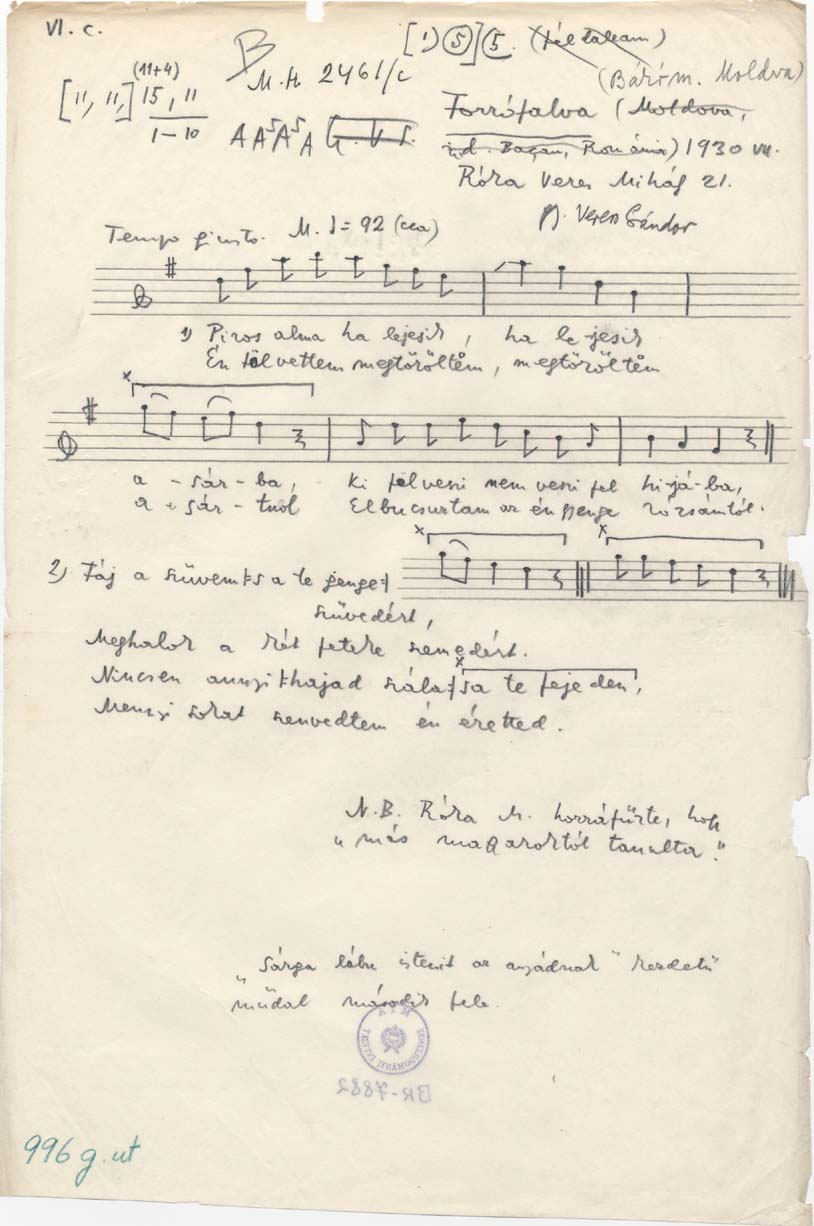 VI. C.
[1) 5] 5. (fél dallam)
B
(11+4)
M. H. 2461/c
(Bákóm. Moldva)
[11, 11,] 15, 11
1–10
A A⁵ A⁵ A
Forrófalva (Moldova,
j.d. Bacau, Románia) 1930 VII.
Róka Veres Mihály 21.
Veress Sándor
Tempo giusto. M. ♩= 92 (cca)
1) Piros alma ha lejesik, ha le-jesik
Én fölvettem megtöröltem, megtöröltem
x
a - sár - ba, ki felveszi nem veszi fel hi-já-ba,
a - sár - tuol Elbucsuztam az én gyenge rózsámtól.
x x
2) Fáj a szüvem ts a te gyenge
szüvedért,
Meghalok a két fekete szemedért.
x
Nincsen annyi hajad szála sa te fejeden,
Mennyi sokat szenvedtem én éretted.
N.B. Róka M. hozzáfűzte, hogy
„más magyaroktól tanulta."
„Sárga lábu istenit az anyádnak" kezdetű
műdal második fele.
BR-7882
996 g. ut